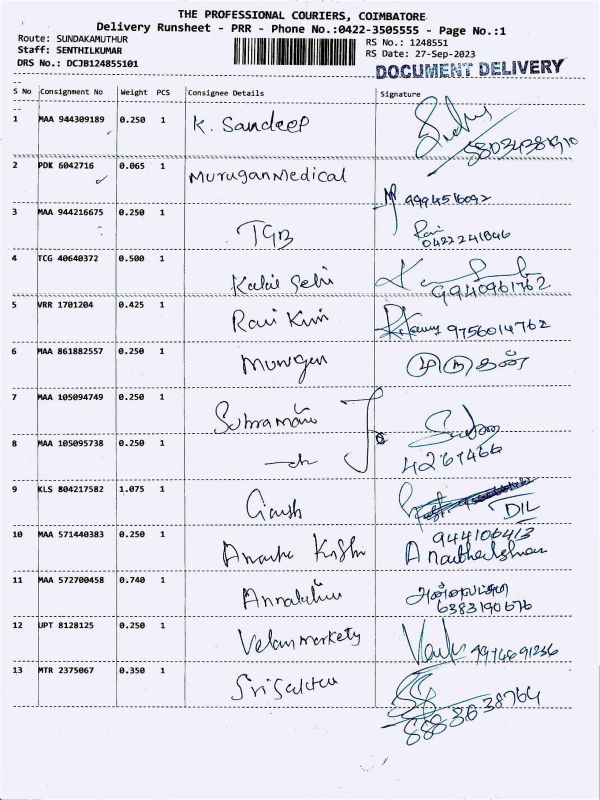 THE PROFESSIONAL COURIERS, COIMBATORE
Delivery Runsheet - PRR - Phone No.:0422-3505555 - Page No.:1
Route: SUNDAKAMUTHUR RS No.: 1248551
Staff: SENTHILKUMAR RS Date: 27-Sep-2023
DRS No.: DCJB124855101 DOCUMENT DELIVERY
S No Consignment No Weight PCS Consignee Details Signature
1 MAA 944309189 0.250 1 K. Sandeep
2 PDK 6042716 0.065 1 Murugan Medical
9994516092
3 MAA 944216675 0.250 1 TGB
0422241846
4 TCG 40640372 0.500 1
9940961762
5 VRR 1701204 0.425 1 9756014762
6 MAA 861882557 0.250 1 Murugan முருகன்
7 MAA 105094749 0.250 1
8 MAA 105095738 0.250 1 4267466
9 KLS 804217582 1.075 1
DIL
10 MAA 571440383 0.250 1 944106413
11 MAA 572700458 0.740 1
6383190676
12 UPT 8128125 0.250 1 Velan markety
13 MTR 2375067 0.350 1